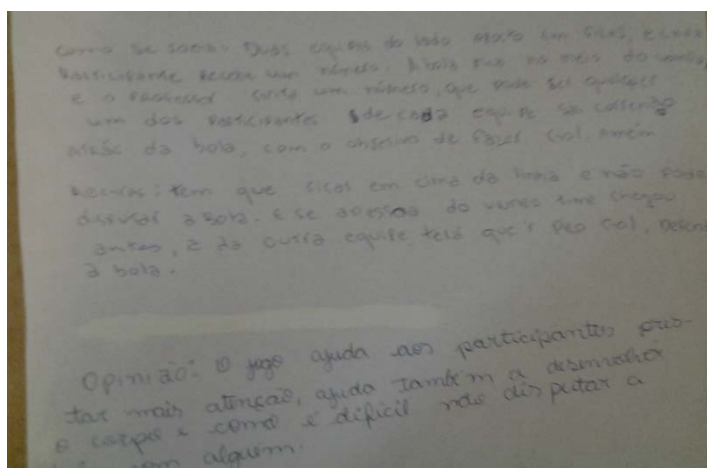 como se socia: Duas equipes do lado oposto em filas, e cada
Participante recebe um número. A bola fica no meio do
e o Professor grita um número, que pode ser qualquer
um dos Participantes de cada equipe sai correndo
atrás da bola, com o objetivo de fazer Gol. Porém
Regras: tem que ficar em cima da linha e não pode
disputar a bola. E se a pessoa do time chegou
antes, a da outra equipe terá que ir pro Gol,
a bola.
Opinião: O jogo ajuda aos participantes pres-
tar mais atenção, ajuda também a desenvolver
o corpo e como é difícil não disputar a
com alguem.